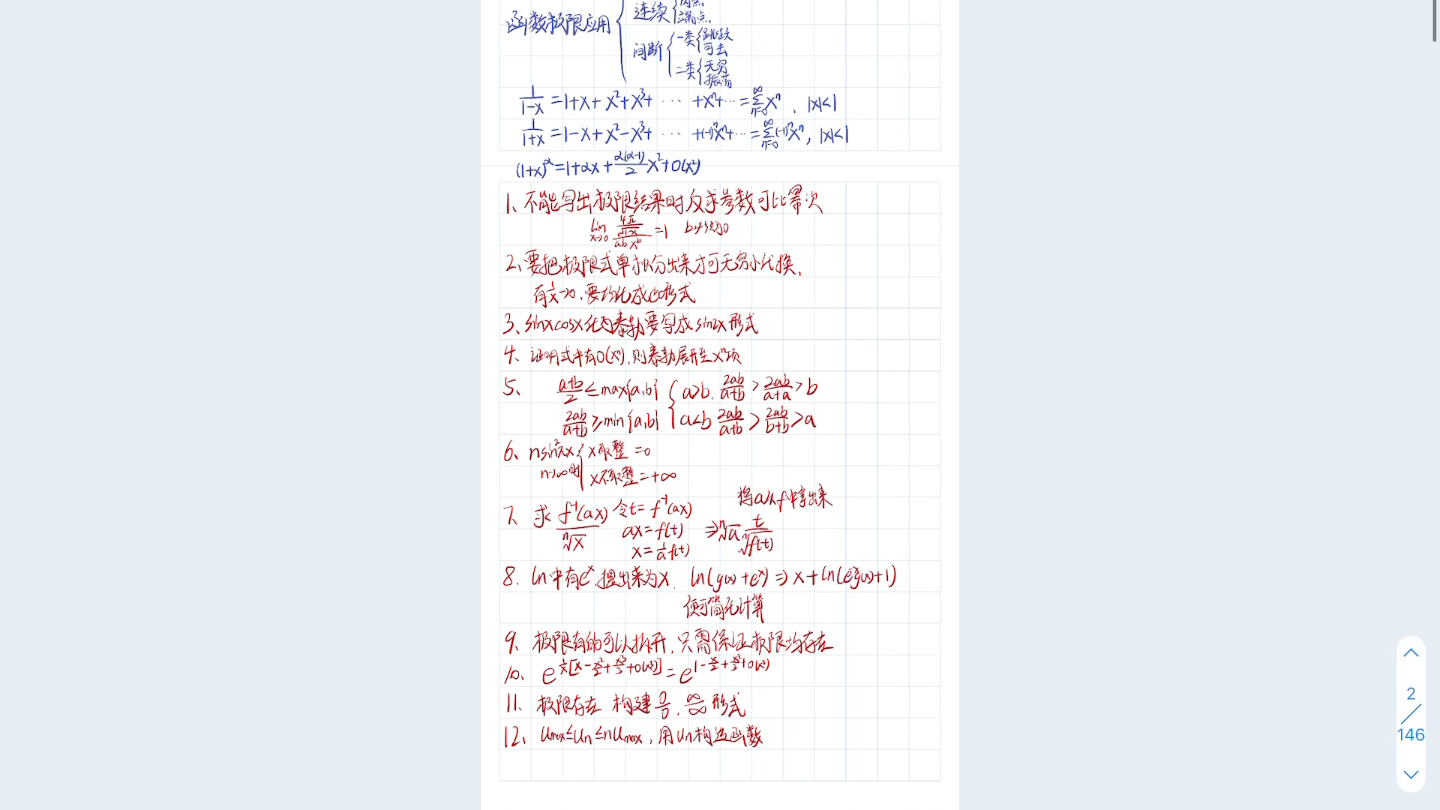 函数极限应用
连续
端点
间断
一类 跳跃 可去
二类 无穷 振荡
1/(1-x) = 1+x+x²+x³+ ⋯ +xⁿ+⋯ = Σ(n=0→∞) xⁿ, |x|<1
1/(1+x) = 1-x+x²-x³+ ⋯ +(-1)ⁿxⁿ+⋯ = Σ(n=0→∞) (-1)ⁿxⁿ, |x|<1
(1+x)^α = 1+αx+α(α-1)/2 x²+o(x²)
1、不能写出极限结果时反求参数可比幂次
lim x→0 =1
2、要把极限式单独分出来才可无穷小代换,
有1/x→0,要均化成此形式
3、sinxcosx化为泰勒要写成sin2x形式
4、证明式中有o(xⁿ),则泰勒展开至xⁿ项
5、 (a+b)/2 ≤ max{a,b} { a>b, 2ab/(a+b) > 2ab/(a+a) > b
2ab/(a+b) ≥ min{a,b} a<b 2ab/(a+b) > 2ab/(b+b) > a
6、 nsin²πx { x取整 =0
n→∞时 x不取整 =+∞
7、求 f⁻¹(ax)/ⁿ√x 令t= f⁻¹(ax) 将a从f中拿出来
ax=f(t) ⇒ ⁿ√a t/ⁿ√f(t)
x=1/a f(t)
8、ln中有eˣ,提出来为x. ln(g(x)+eˣ) ⇒ x+ln(e⁻ˣg(x)+1)
便可简化计算
9、极限有的可以拆开,只需保证极限均存在
10、 e^{1/x[x-x²/2+x³/3+o(x³)]} = e^{1-x/2+x²/3+o(x²)}
11、极限存在 构建0/0, ∞/∞形式
12、 u_max≤u_n≤nu_max, 用u_n构造函数
2
146